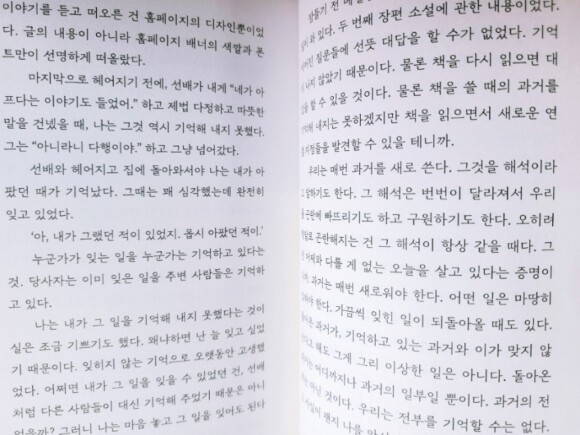 이야기를 듣고 떠오른 건 홈페이지의 디자인뿐이었
다. 글의 내용이 아니라 홈페이지 배너의 색깔과 폰
트만이 선명하게 떠올랐다.
마지막으로 헤어지기 전에, 선배가 내게 “네가 아
프다는 이야기도 들었어.” 하고 제법 다정하고 따뜻한
말을 건넸을 때, 나는 그것 역시 기억해 내지 못했다.
그는 “아니라니 다행이야.” 하고 그냥 넘어갔다.
선배와 헤어지고 집에 돌아와서야 나는 내가 아
팠던 때가 기억났다. 그때는 꽤 심각했는데 완전히
잊고 있었다.
‘아, 내가 그랬던 적이 있었지. 몹시 아팠던 적이.’
누군가가 잊는 일을 누군가는 기억하고 있다는
것. 당사자는 이미 잊은 일을 주변 사람들은 기억하
고 있다.
나는 내가 그 일을 기억해 내지 못했다는 것이
실은 조금 기쁘기도 했다. 왜냐하면 난 늘 잊고 싶었
기 때문이다. 잊히지 않는 기억으로 오랫동안 고생했
었다. 어쩌면 내가 그 일을 잊을 수 있었던 건, 선배
처럼 다른 사람들이 대신 기억해 주었기 때문은 아니
었을까? 그러니 나는 마음 놓고 그 일을 잊어도 된다
잠들기 전 메
와 있다. 두 번째 장편 소설에 관한 내용이었다.
질문들에 선뜻 대답을 할 수가 없었다. 기억
나지 않았기 때문이다. 물론 책을 다시 읽으면 대
할 수 있을 것이다. 물론 책을 쓸 때의 과거를
내지는 못하겠지만 책을 읽으면서 새로운 연
지점들을 발견할 수 있을 테니까.
우리는 매번 과거를 새로 쓴다. 그것을 해석이라
말하기도 한다. 그 해석은 번번이 달라져서 우리
곤란에 빠뜨리기도 하고 구원하기도 한다. 오히려
곤란해지는 건 그 해석이 항상 같을 때다. 그
어제와 다를 게 없는 오늘을 살고 있다는 증명이
과거는 매번 새로워야 한다. 어떤 일은 마땅히
한다. 가끔씩 잊힌 일이 되돌아올 때도 있다.
과거가, 기억하고 있는 과거와 이가 맞지 않
해도 그게 그리 이상한 일은 아니다. 돌아온
어디까지나 과거의 일부일 뿐이다. 과거의 전
아닌 것이다. 우리는 전부를 기억할 수는 없다.